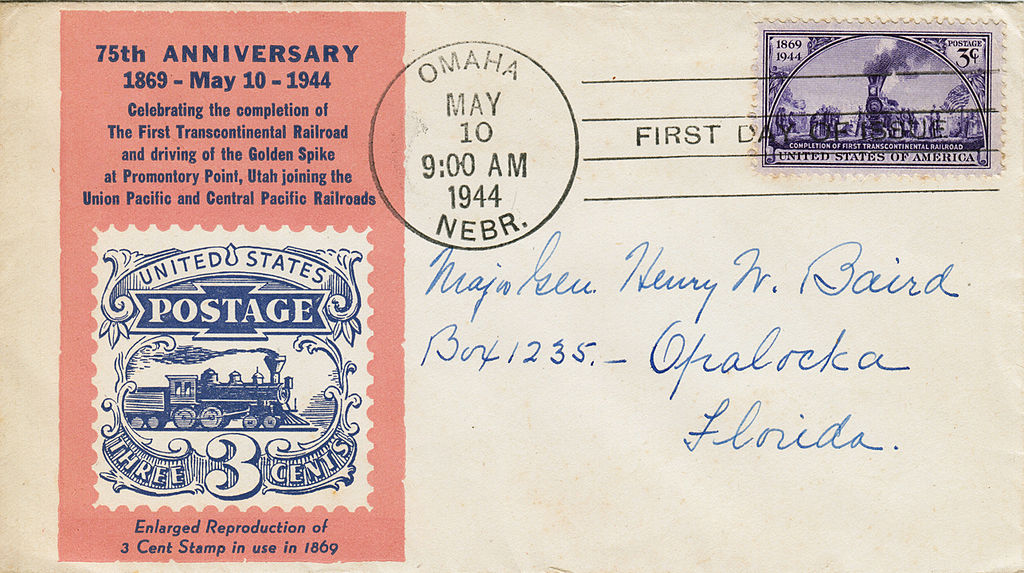 75th ANNIVERSARY
1869 - May 10 - 1944
Celebrating the completion of
The First Transcontinental Railroad
and driving of the Golden Spike
at Promontory Point, Utah joining the
Union Pacific and Central Pacific Railroads
UNITED STATES
POSTAGE
THREE 3 CENTS
Enlarged Reproduction of
3 Cent Stamp in use in 1869
OMAHA
MAY
10
9:00 AM
1944
NEBR.
FIRST DAY OF ISSUE
1869
1944
POSTAGE
3¢
COMPLETION OF FIRST TRANSCONTINENTAL RAILROAD
UNITED STATES OF AMERICA
Major Gen. Henry W. Baird.
Box 1235. – Opalocka
Florida.